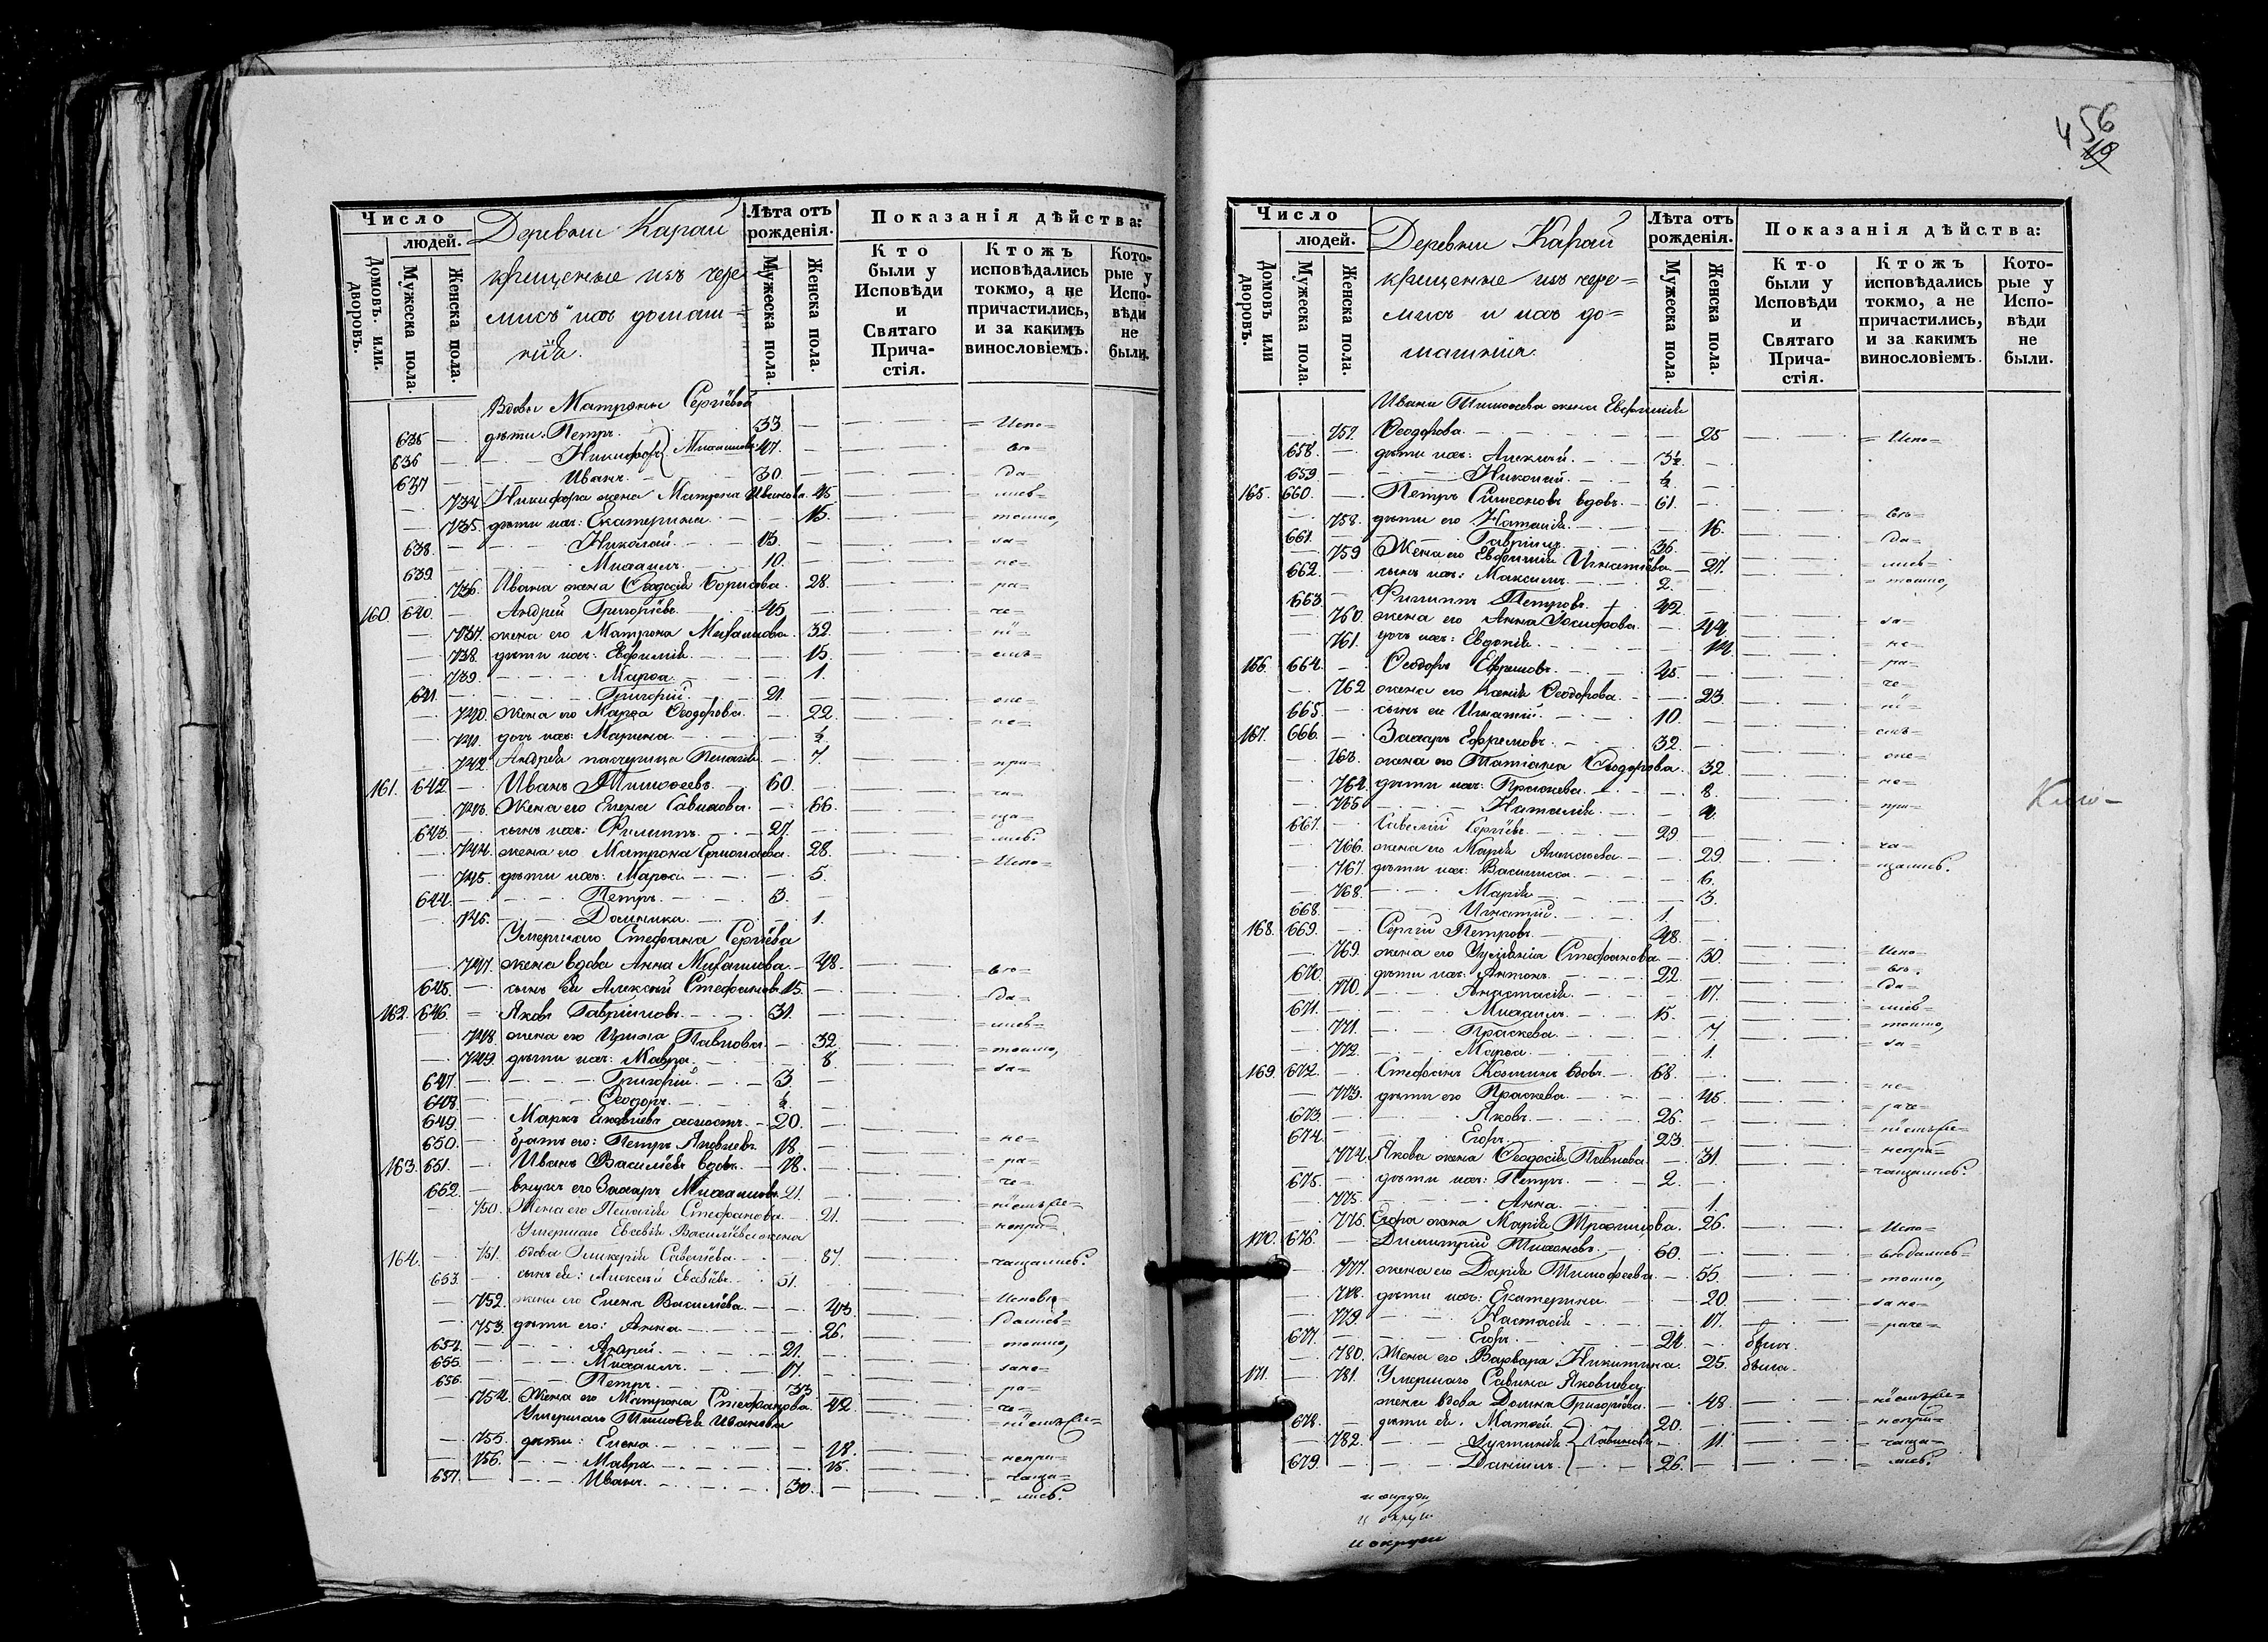 Число
людей.
Домовъ или дворовъ.
Мужеска пола.
Женска пола.
Деревни Карай
крещеные изъ чере-
мисъ и ихъ домаш-
нія.
Лѣта отъ рожденія.
Мужеска пола.
Женска пола.
Показанія дѣйства:
Кто были у Исповѣди и Святаго Прича-стія.
Ктожъ исповѣдались токмо, а не причастились, и за какимъ винословіемъ.
Кото-рые у Испо-вѣди не были.
Вдовы Матроны Сергіевой
635 — дѣти: Петръ 33 — = Испо=
636 — Никифоръ } Михайловы 47. — = вѣ=
637 — Иванъ 30. — = да=
— 734. Никифора жена Матрона Иванова. 45 = лись=
— 735. дѣти ихъ: Екатерина. — 15. = токмо,
638. — Николай. 13. — = за=
639. — Михаилъ. 10. — = не=
— 736. Ивана жена Ѳеодосія Борисова. 28. = ра=
160. 640. — Андрей Григорьевъ. 45 — = че=
— 737. жена его Матрона Михайлова. 32. = ні=
— 738. дѣти ихъ: Евфимія. — 15. = емъ=
— 739. Марѳа. — 1.
641. — Григорій. 21. — = оне=
— 740. жена его Марѳа Ѳеодорова. — 22. = не=
— 741. дочь ихъ: Марина. — ½
— 742. Андрея падчерица Пелагія — 7. = при=
161. 642. — Иванъ Тимоѳеевъ. 60. — = ча=
— 743. Жена его Елена Савинова. — 66. = ща=
643. — сынъ ихъ: Филиппъ. 27. — = лись.
— 744. жена его Матрона Ермолаева. 28. = Испо=
— 745. дѣти ихъ: Марѳа. — 5.
644. — Петръ. 3. —
— 746. Домника. — 1.
Умершаго Стефана Сергіева
— 747. жена вдова Анна Михайлова. — 48. = вѣ=
645. — сынъ ея Алексій Стефановъ. 15. — = да=
162. 646. = Яковъ Гавріиловъ. 31. — = лись=
— 748. жена его Ирина Павлова. — 32. = токмо,
— 749. дѣти ихъ: Мавра. — 8. = за=
647. — Григорій. 3. —
648. — Ѳеодоръ. ½
649. — Маркъ Яковлевъ холостъ. 20. —
650. — братъ его: Петръ Яковлевъ. 18. — = не=
163. 651. — Иванъ Васильевъ вдовъ. 78. — = ра=
652. — внукъ его Захаръ Михайловъ. 21. — = че=
— 750. Жена его Пелагія Стефанова. 21. = ніемъ не=
Умершаго Евсевія Васильева жена = непри=
164. — 751. вдова Гликерія Савельева. 87. = чащались.
653. — сынъ ея: Алексій Евсевіевъ. 51. —
— 752. жена его Елена Васильева. — 43. = Исповѣ=
— 753. дѣти его: Анна. — 26. = дались=
654. — Андрей. 21. — = токмо,
655. — Михаилъ. 17. — = зане=
656. — Петръ. 33. = ра=
— 754. Жена его Матрона Стефанова. 42. = че=
Умершаго Тимоѳея Иванова = ніемъ не=
— 755. дѣти: Елена. — 18.
— 756. Мавра. — 15. = непри=
657. — Иванъ. 30. — = чаща=
= лись.
456
19
Число
людей.
Домовъ или дворовъ.
Мужеска пола.
Женска пола.
Деревни Карай
крещеные изъ чере=
мисъ и ихъ до=
машнія.
Лѣта отъ рожденія.
Мужеска пола.
Женска пола.
Показанія дѣйства:
Кто были у Исповѣди и Святаго Прича-стія.
Ктожъ исповѣдались токмо, а не причастились, и за какимъ винословіемъ.
Кото-рые у Испо-вѣди не были.
Ивана Тимоѳеева жена Евфимія
— 757. Ѳеодорова. — 25 = Испо=
658. — дѣти ихъ: Алексій. 3½ —
659. — Николай. ½ —
165. 660. — Петръ Симеоновъ вдовъ. 61. —
— 758. дѣти его Наталія. — 16. = вѣ=
661. — Гавріилъ. 36. — = да=
— 759 Жена его Евфимія Игнатіева. — 27. = лись=
662. — сынъ ихъ: Максимъ. 2. — = токмо,
663. — Филиппъ Петровъ. 42. —
— 760. жена его Анна Іосифова. — 44. = за=
— 761. дочь ихъ: Евдокія. — 14. = не=
166. 664. — Ѳеодоръ Ефремовъ. 45. — = ра=
— 762 жена его Ксенія Ѳеодорова. — 23. = че=
665. — сынъ ея Игнатій. 10. — = ні=
167. 666. — Захаръ Ефремовъ. 32. — = емъ=
— 763. жена его Татіана Ѳеодорова. 32. = оне=
— 764. дѣти ихъ: Праскева. — 8. = не=
— 765 Наталія. — 4. = при=
667. — Савелій Сергіевъ. 29 —
— 766. жена его Марія Алексѣева. — 29. = ча=
— 767. дѣти ихъ: Василисса. — 6. = щались.
— 768. Марія — 3.
668. — Игнатій. 1. —
168. 669. — Сергій Петровъ. 48. —
— 769. жена его Іуліанія Стефанова. — 30 = Испо=
670. — дѣти ихъ: Антонъ. 22. — = вѣ=
— 770. Анастасія. — 17. = да=
671. — Михаилъ. 15. — = лись=
— 771. Праскева. — 7. = токмо,
— 772. Марѳа. — 1. = за=
169. 672. — Стефанъ Козминъ вдовъ. 68. —
— 773. дѣти его Праскева. — 45. = не=
673. — Яковъ. 26. — = раче=
674. — Егоръ. 23 — = ніемъ не=
— 774. Якова жена Ѳеодосія Павлова. — 31. = непри=
675. — дѣти ихъ: Петръ. 2. — = чащались.
— 775. Анна. — 1.
— 776. Егора жена Марія Трофимова. 26. = Испо=
170. 676. — Димитрій Тихоновъ. 60. — = вѣдались=
— 777. жена его Дарія Тимоѳеева. — 55. = токмо,
— 778. дѣти ихъ: Екатерина. 20. = за не=
— 779 Настасія — 17. = раче=
677. — Егоръ. 24. — былъ.
— 780. Жена его Варвара Никитина. 25. была.
171. — 781. Умершаго Савина Яковлева
жена вдова Домна Григорьева. — 48. = ніемъ не=
678. — дѣти ея: Матѳей. 20. — = непри=
— 782. Іустинія } Савиновы — 11. = чаща=
679. — Даніилъ. 26. — = лись.
и округи
и округи
и округи